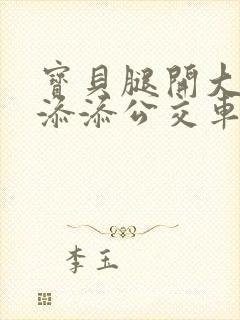 寶貝腿開大
添添公交車
李玉